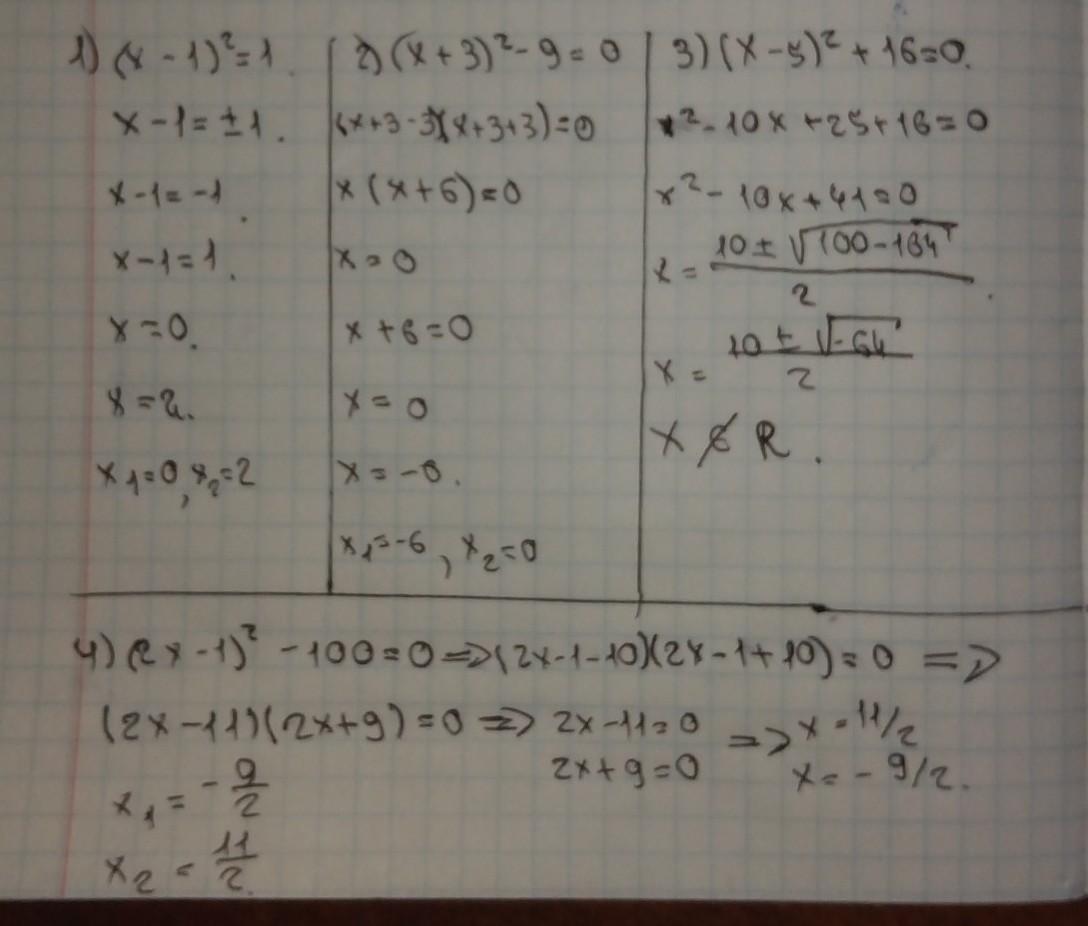 1) (x - 1)² = 1.
x - 1 = ± 1.
x - 1 = -1.
x - 1 = 1.
x = 0.
x = 2.
x₁ = 0, x₂ = 2
2) (x + 3)² - 9 = 0
(x+3-3)(x+3+3) = 0
x (x + 6) = 0
x = 0
x + 6 = 0
x = 0
x = -0.
x₁ = -6, x₂ = 0
3) (x - 5)² + 16 = 0.
x² - 10x + 25 + 16 = 0
x² - 10x + 41 = 0
x = (10 ± √(100 - 164)) / 2.
x = (10 ± √(-64)) / 2
x ∉ R.
4) (2x - 1)² - 100 = 0 => (2x - 1 - 10)(2x - 1 + 10) = 0 =>
(2x - 11)(2x + 9) = 0 => 2x - 11 = 0 => x = 11/2
2x + 9 = 0 x = - 9/2.
x₁ = - 9/2
x₂ = 11/2.